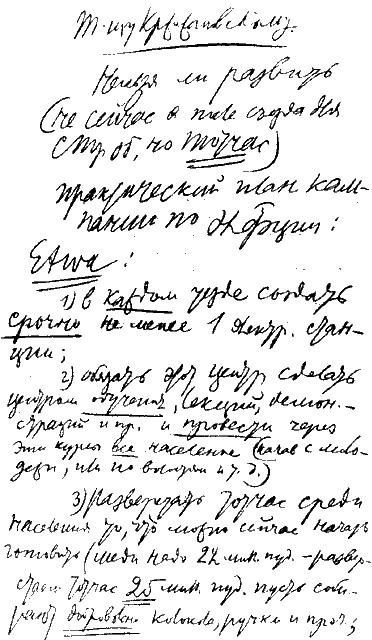 Т-щу Кржижановскому.
Нельзя ли развить
(не сейчас а после съезда для
СТО, но тотчас)
практический план кам-
пании по Э-фикции:
Etwa:
1) в каждом уезде создать
срочно не менее 1 электр. стан-
ции;
2) обязать этот центр сделать
центром обучения, лекций, демон-
страций и пр. и провести через
эти курсы все население (начав с моло-
дежи, или по волостям и т. д.)
3) Развёрстать тотчас среди
населения то, что можно сейчас начать
готовить (меди надо 22 мил. пуд. - развер-
стаем тотчас 25 мил. пуд. пусть соби-
рают добровольно колокола, ручки и проч.;